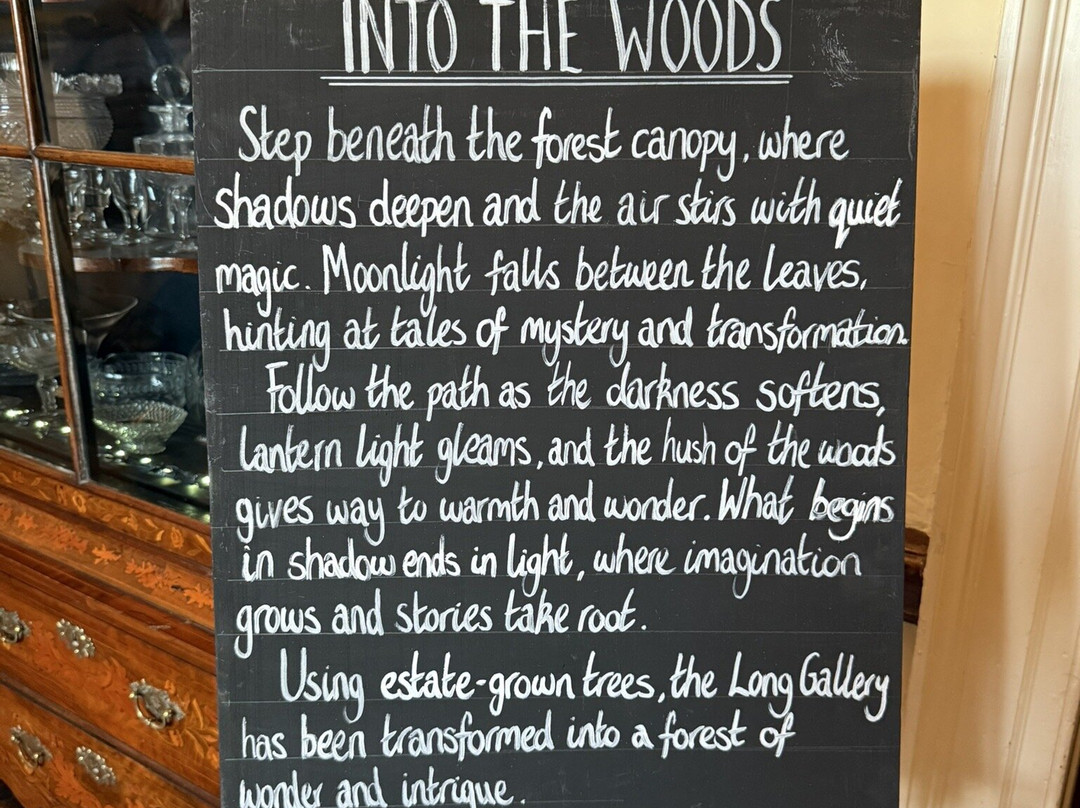 INTO THE WOODS
Step beneath the forest canopy, where
shadows deepen and the air stirs with quiet
magic. Moonlight falls between the leaves,
hinting at tales of mystery and transformation.
Follow the path as the darkness softens,
lantern light gleams, and the hush of the woods
gives way to warmth and wonder. What begins
in shadow ends in light, where imagination
grows and stories take root.
Using estate-grown trees, the Long Gallery
has been transformed into a forest of
wonder and intrigue.